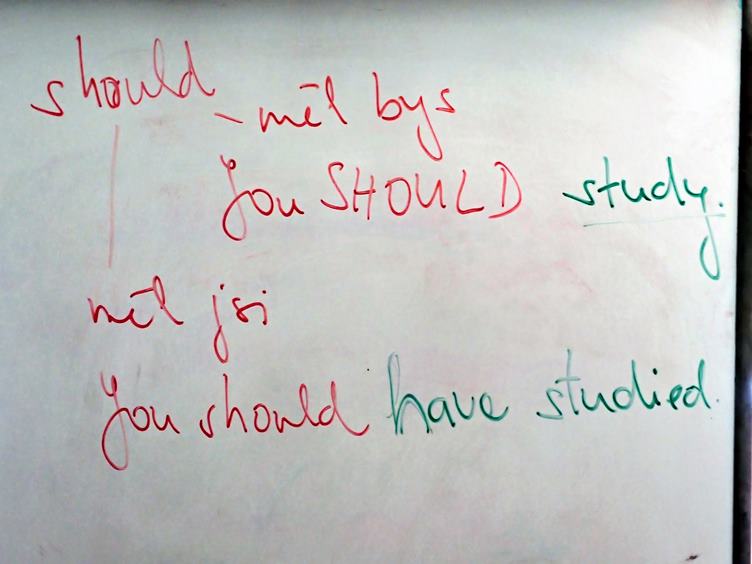 should
- měl bys
you SHOULD study.
měl jsi
you should have studied.